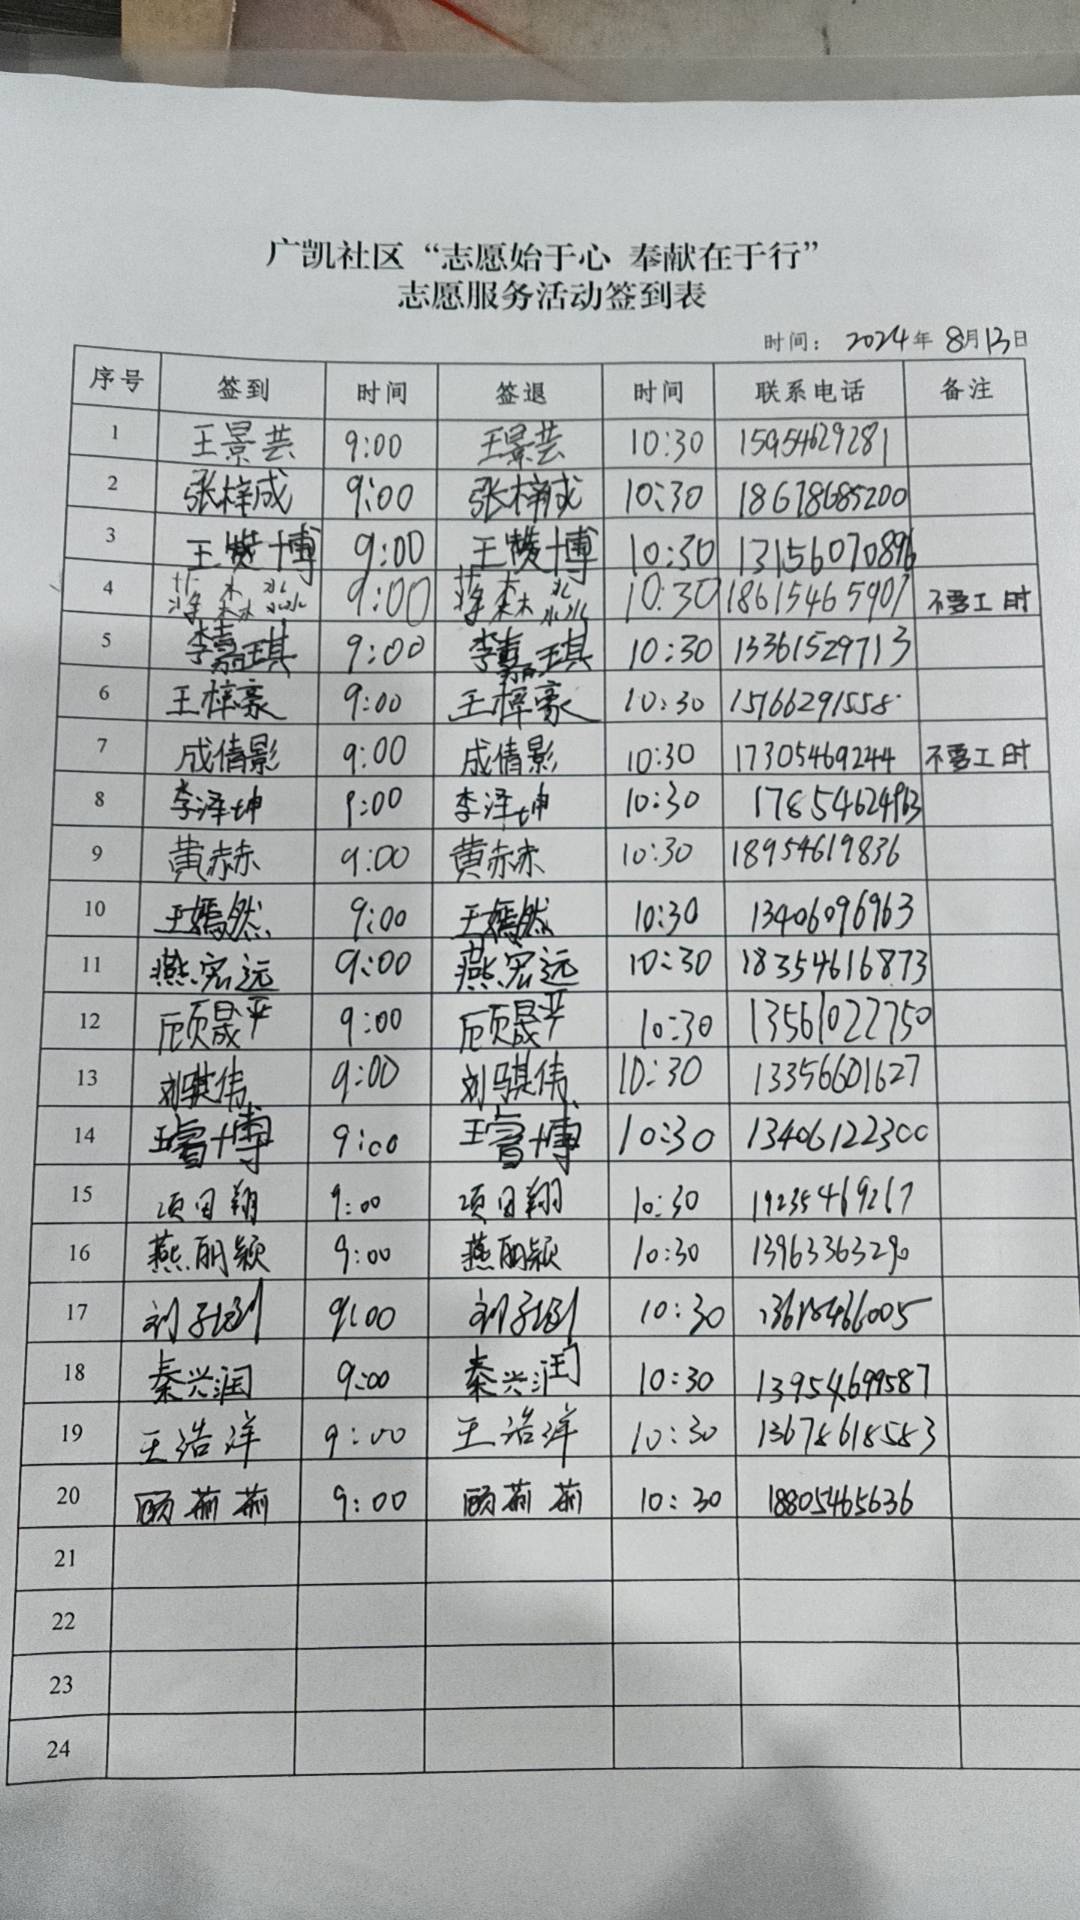 广凯社区“志愿始于心 奉献在于行”
志愿服务活动签到表
时间： 2024年 8月13日
序号 签到 时间 签退 时间 联系电话 备注
1 王景芸 9:00 王景芸 10:30 15954629281
2 张梓成 9:00 张梓成 10:30 18678685200
3 9:00 10:30 13156070896
4 蒋森淼 9:00 蒋森淼 10:30 18615465907 不要工时
5 李嘉琪 9:00 李嘉琪 10:30 13361529713
6 王梓豪 9:00 王梓豪 10:30 15166291558
7 成倩影 9:00 成倩影 10:30 17305469244 不要工时
8 李泽坤 9:00 李泽坤 10:30 17854624963
9 黄赫 9:00 黄赫 10:30 18954619836
10 王嫣然 9:00 王嫣然 10:30 13406096963
11 燕宏远 9:00 燕宏远 10:30 18354616873
12 顾晟平 9:00 顾晟平 10:30 13561022750
13 刘骐伟 9:00 刘骐伟 10:30 13356601627
14 王睿博 9:00 王睿博 10:30 13406122300
15 项目翔 9:00 项目翔 10:30 19235469267
16 燕丽颖 9:00 燕丽颖 10:30 13963363290
17 9:00 10:30 13615466005
18 秦兴润 9:00 秦兴润 10:30 13954699587
19 王浩洋 9:00 王浩洋 10:30 13678618583
20 顾莉莉 9:00 顾莉莉 10:30 18805465636
21
22
23
24